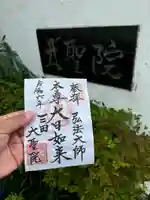 大聖院
奉拝 弘法大師
本尊大日如来
令和六年
大聖院